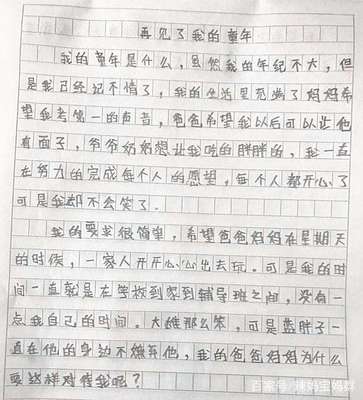 再见了我的童年
我的童年是什么,虽然我的年纪不大,但
是我已经记不清了,我的生活里充满了妈妈希
望我考第一的声音,爸爸希望我以后可以让他
有面子,爷爷奶奶想让我吃的胖胖的,我一直
在努力的完成每个人的愿望,每个人都开心了
可是我却不会笑了.
我的要求很简单,希望爸爸妈妈在星期天
的时候,一家人开开心心出去玩。可是我的时
间一直就是在学校到家到辅导班之间,没有一
点我自己的时间。大雄那么笨,可是蓝胖子一
直在他的身边不嫌弃他,我的爸爸妈妈为什么
要这样对待我呢?